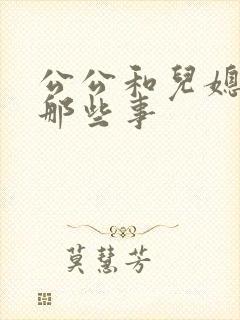 公公和兒媳
那些事
莫慧芳